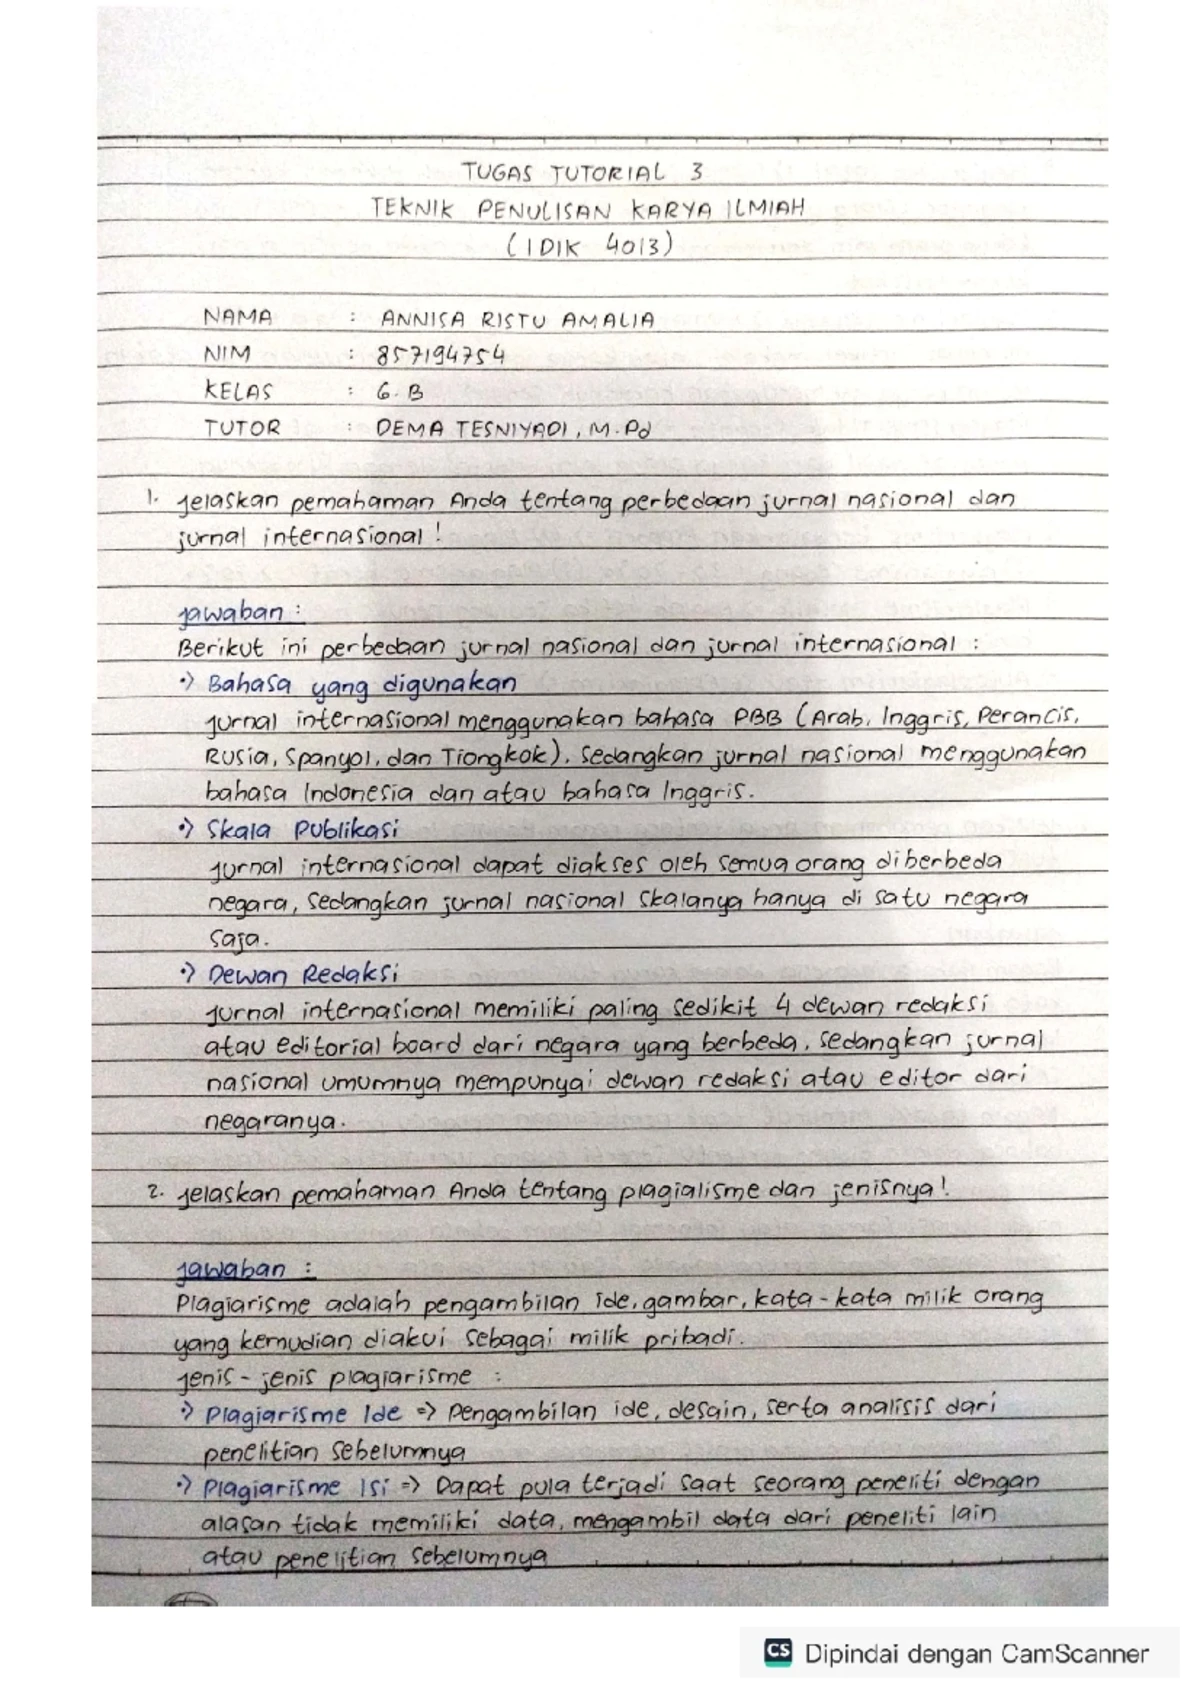 TUGAS TUTORIAL 3
TEKNIK PENULISAN KARYA ILMIAH
(IDIK 4013)
NAMA : ANNISA RISTU AMALIA
NIM : 857194754
KELAS : 6.B
TUTOR : DEMA TESNIYADI, M.Pd
1. Jelaskan pemahaman Anda tentang perbedaan jurnal nasional dan
jurnal internasional!
Jawaban :
Berikut ini perbedaan jurnal nasional dan jurnal internasional :
•) Bahasa yang digunakan
Jurnal internasional menggunakan bahasa PBB (Arab, Inggris, Perancis,
Rusia, Spanyol, dan Tiongkok). Sedangkan jurnal nasional menggunakan
bahasa Indonesia dan atau bahasa Inggris.
•) Skala Publikasi
Jurnal internasional dapat diakses oleh semua orang diberbeda
negara, sedangkan jurnal nasional skalanya hanya di satu negara
saja.
•) Dewan Redaksi
Jurnal internasional memiliki paling sedikit 4 dewan redaksi
atau editorial board dari negara yang berbeda, sedangkan jurnal
nasional umumnya mempunyai dewan redaksi atau editor dari
negaranya.
2. Jelaskan pemahaman Anda tentang plagialisme dan jenisnya!
Jawaban :
Plagiarisme adalah pengambilan ide, gambar, kata-kata milik orang
yang kemudian diakui sebagai milik pribadi.
Jenis-jenis plagiarisme :
•) Plagiarisme Ide => Pengambilan ide, desain, serta analisis dari
penelitian sebelumnya
•) Plagiarisme Isi => Dapat pula terjadi saat seorang peneliti dengan
alasan tidak memiliki data, mengambil data dari peneliti lain
atau penelitian sebelumnya
CS Dipindai dengan CamScanner